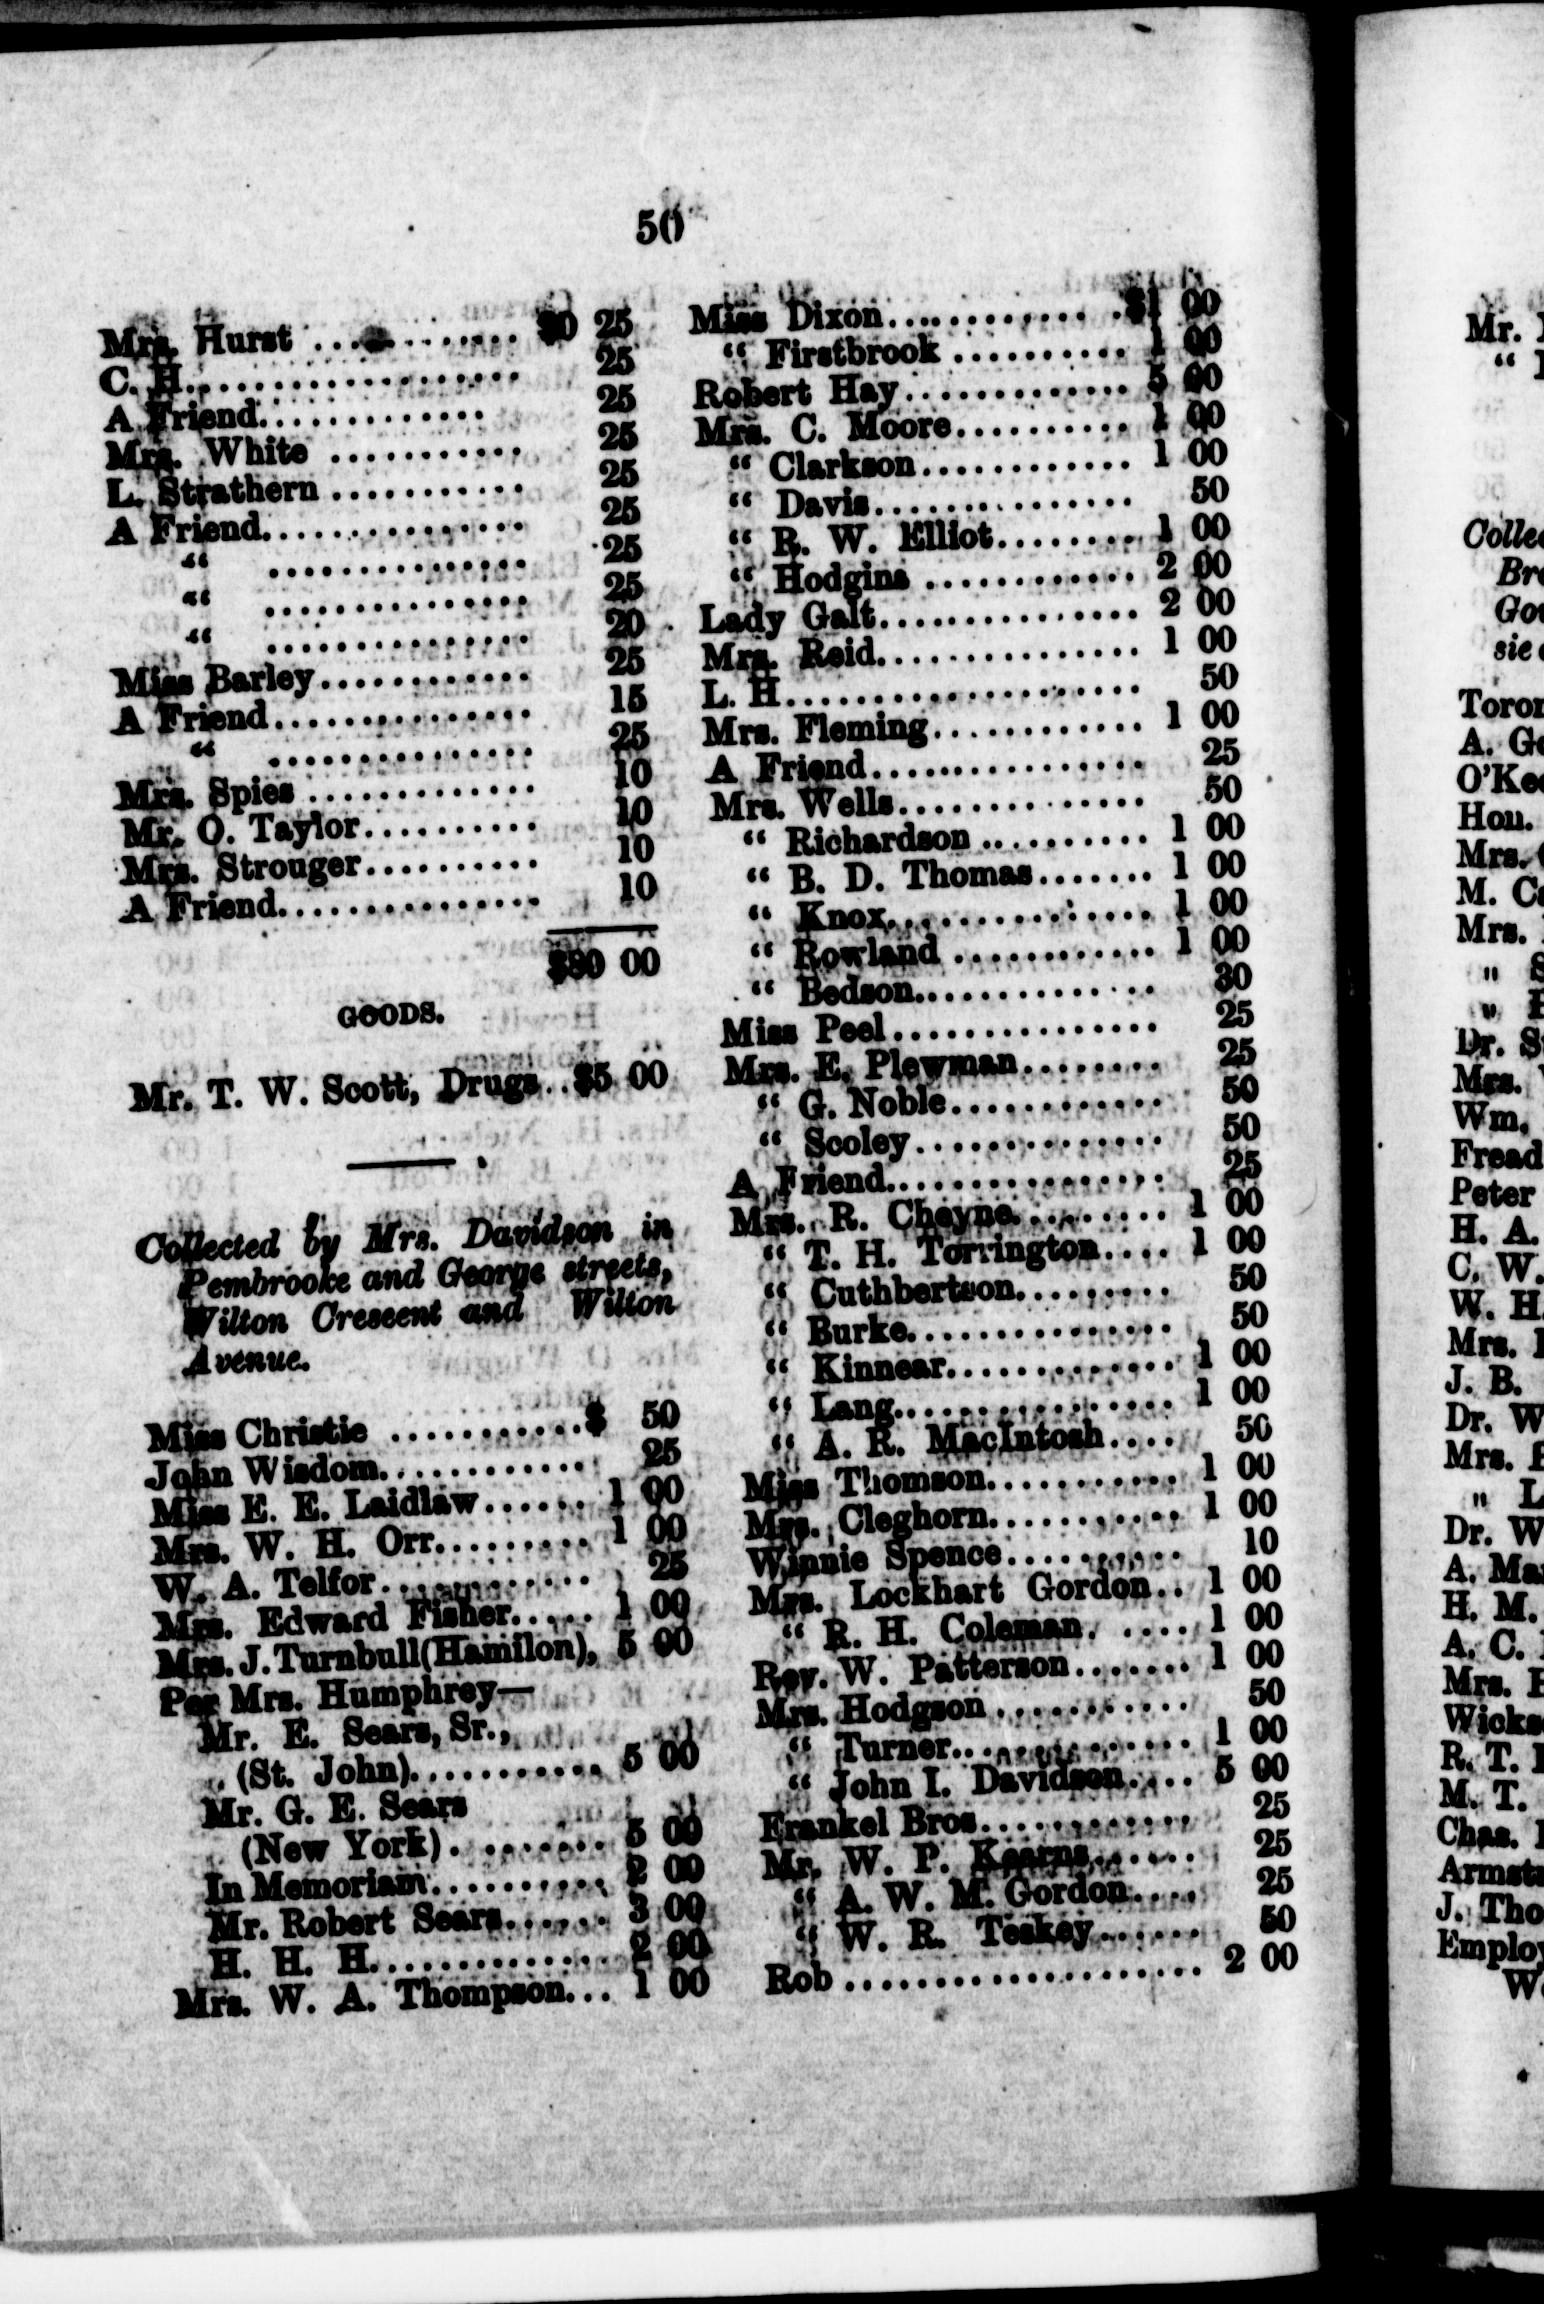 50
Mrs. Hurst ............ $0 25
C. H.................... 25
A Friend............... 25
Mrs. White ........... 25
L. Strathern ........... 25
A Friend............... 25
“ ............... 25
“ ............... 25
“ ............... 20
Miss Barley............ 25
A Friend............... 15
“ ............... 25
Mrs. Spies ............. 10
Mr. O. Taylor.......... 10
Mrs. Strouger.......... 10
A Friend............... 10
00
GOODS.
Mr. T. W. Scott, Drugs.. $5 00
Collected by Mrs. Davidson in
Pembrooke and George streets,
Wilton Crescent and Wilton
Avenue.
Miss Christie ...........$ 50
John Wisdom............ 25
Miss E. E. Laidlaw...... 1 00
Mrs. W. H. Orr......... 1 00
W. A. Telfor............ 25
Mrs. Edward Fisher..... 1 00
Mrs. J. Turnbull(Hamilon), 5 00
Per Mrs. Humphrey—
Mr. E. Sears, Sr.,
(St. John)........... 5 00
Mr. G. E. Sears
(New York). ....... 5 00
In Memoriam.......... 2 00
Mr. Robert Sears...... 3 00
H. H. H............. 2 00
Mrs. W. A. Thompson... 1 00
Miss Dixon............. $1 00
“ Firstbrook .......... 1 00
Robert Hay............. 5 00
Mrs. C. Moore.......... 1 00
“ Clarkson............ 1 00
“ Davis............... 50
“ R. W. Elliot........ 1 00
“ Hodgins ............ 2 00
Lady Galt............... 2 00
Mrs. Reid............... 1 00
L. H.................... 50
Mrs. Fleming............ 1 00
A Friend................ 25
Mrs. Wells.............. 50
“ Richardson .......... 1 00
“ B. D. Thomas....... 1 00
“ Knox............... 1 00
“ Rowland ............ 1 00
“ Bedson.............. 30
Miss Peel............... 25
Mrs. E. Plewman........ 25
“ G. Noble............ 50
“ Scoley.............. 50
A Friend................ 25
Mrs. R. Cheyne......... 1 00
“ T. H. Torrington.... 1 00
“ Cuthbertson......... 50
“ Burke............... 50
“ Kinnear............. 1 00
“ Lang................ 1 00
“ A. R. MacIntosh.... 50
Miss Thomson........... 1 00
Mrs. Cleghorn........... 1 00
Winnie Spence.......... 10
Mrs. Lockhart Gordon.. 1 00
“ R. H. Coleman. .... 1 00
Rev. W. Patterson....... 1 00
Mrs. Hodgson ........... 50
“ Turner.............. 1 00
“ John I. Davidson.... 5 00
Frankel Bros............ 25
Mr. W. P. Kearns...... 25
“ A. W. M. Gordon.... 25
“ W. R. Teskey...... 50
Rob .................... 2 00
Mr.
“
Collec
Bro
Gov
sie
Toron
A. Go
O'Kee
Hon.
Mrs.
M. Ca
Mrs.
" S
"
Dr. S
Mrs.
Wm.
Fread
Peter
H. A.
C. W.
W. H.
Mrs.
J. B.
Dr. W
Mrs.
" L
Dr. W
A. Ma
H. M.
A. C.
Mrs.
Wicks
R. T.
M. T.
Chas.
Armst
J. Tho
Employ
W